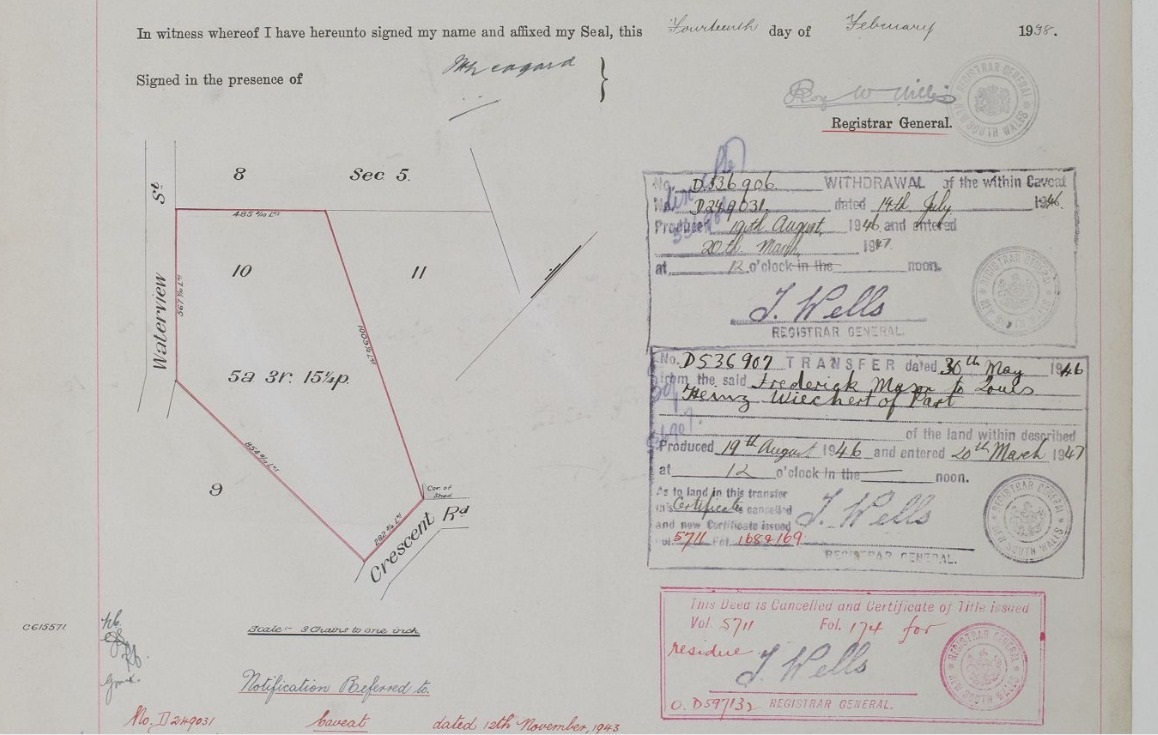 In witness whereof I have hereunto signed my name and affixed my Seal, this Fourteenth day of February 1938.
Signed in the presence of
Roy W Willis
Registrar General.
REGISTRAR GENERAL NEW SOUTH WALES
8 Sec 5.
St
485 Lks
10
11
Waterview
5a 3r: 15¼p.
9
Cor of Shed
Crescent Rd
Scale:- 3 Chains to one inch
C615571
Notification Referred to.
No. D249031 Caveat dated 12th November, 1943
No. D536906 WITHDRAWAL of the within Caveat
No. D249031 dated 14th July 1946.
Produced 19th August, 1946 and entered
20th March, 1947.
at 12 o'clock in the noon.
J. Wells
REGISTRAR GENERAL.
REGISTRAR GENERAL NEW SOUTH WALES
No. D536907 TRANSFER dated 30th May 1946
from the said Frederick Mason to Louis
Heinz Wiechert of Part
of the land within described
Produced 19th August 1946 and entered 20th March 1947
at 12 o'clock in the noon.
As to land in this transfer
this Certificate is cancelled
and new Certificate issued
Vol. 5711 Fol. 168&169
J. Wells
REGISTRAR GENERAL.
REGISTRAR GENERAL NEW SOUTH WALES
This Deed is Cancelled and Certificate of Title issued
Vol. 5711 Fol. 174 for
residue
J. Wells
O. D597132 REGISTRAR GENERAL.
REGISTRAR GENERAL NEW SOUTH WALES